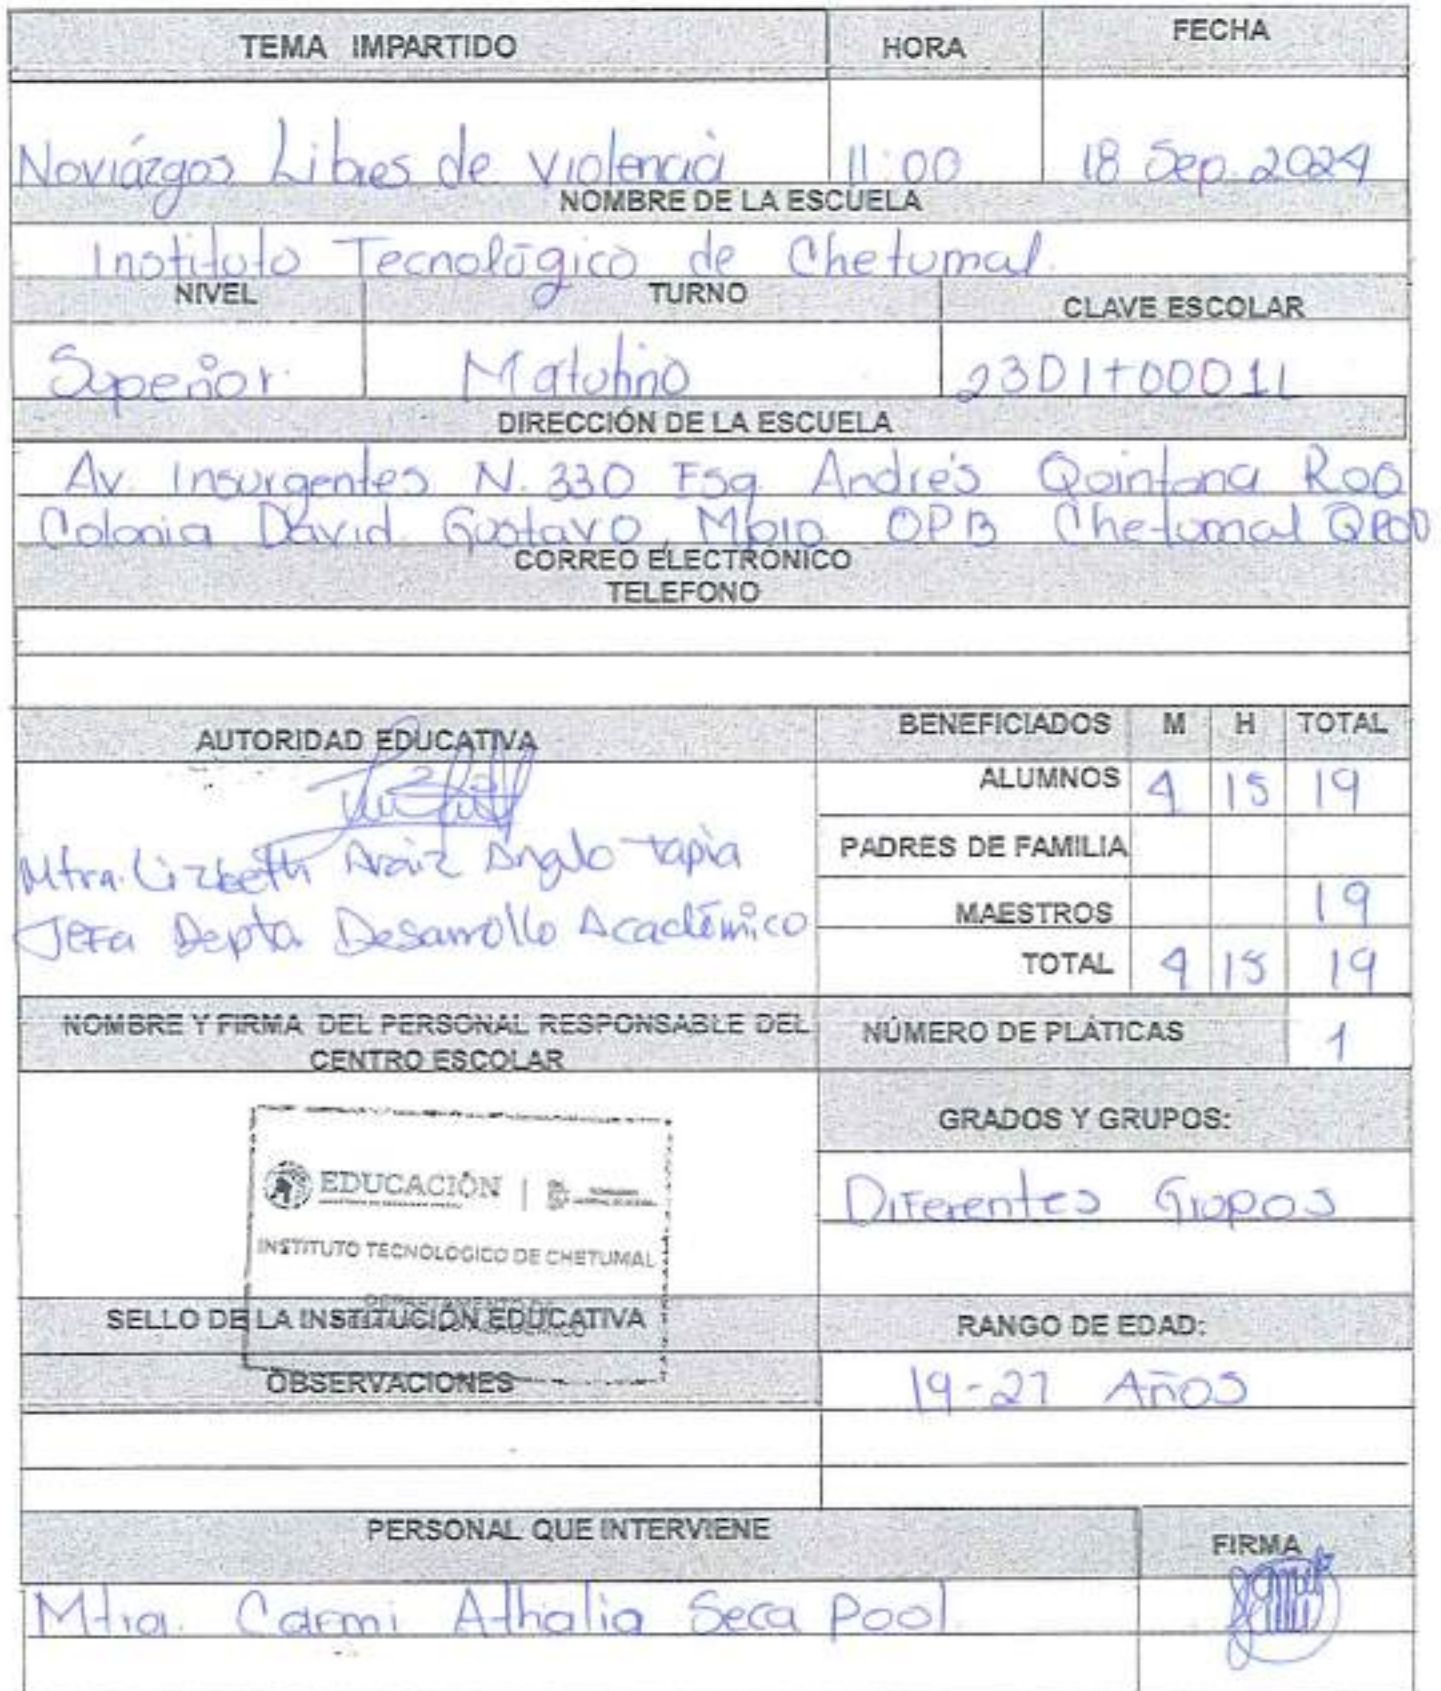 TEMA IMPARTIDO HORA FECHA
Noviázgos Libres de violencia 11:00 18 Sep. 2024
NOMBRE DE LA ESCUELA
Instituto Tecnológico de Chetumal.
NIVEL TURNO CLAVE ESCOLAR
Superior Matutino 23DIT0001L
DIRECCIÓN DE LA ESCUELA
Av. Insurgentes N. 330 Esq. Andrés Quintana Roo
Colonia David Gustavo Chetumal QROO
CORREO ELECTRÓNICO
TELEFONO
AUTORIDAD EDUCATIVA BENEFICIADOS M H TOTAL
ALUMNOS 4 15 19
Mtra. Lizbeth Angulo Tapia PADRES DE FAMILIA
Jefa Depto. Desarrollo Académico MAESTROS 19
TOTAL 4 15 19
NOMBRE Y FIRMA DEL PERSONAL RESPONSABLE DEL CENTRO ESCOLAR NÚMERO DE PLÁTICAS 1
GRADOS Y GRUPOS:
EDUCACIÓN Diferentes Grupos
INSTITUTO TECNOLOGICO DE CHETUMAL
DEPARTAMENTO DE
SELLO DE LA INSTITUCIÓN EDUCATIVA RANGO DE EDAD:
OBSERVACIONES 19-27 Años
PERSONAL QUE INTERVIENE FIRMA
Mtra. Carmi Athalia Seca Pool